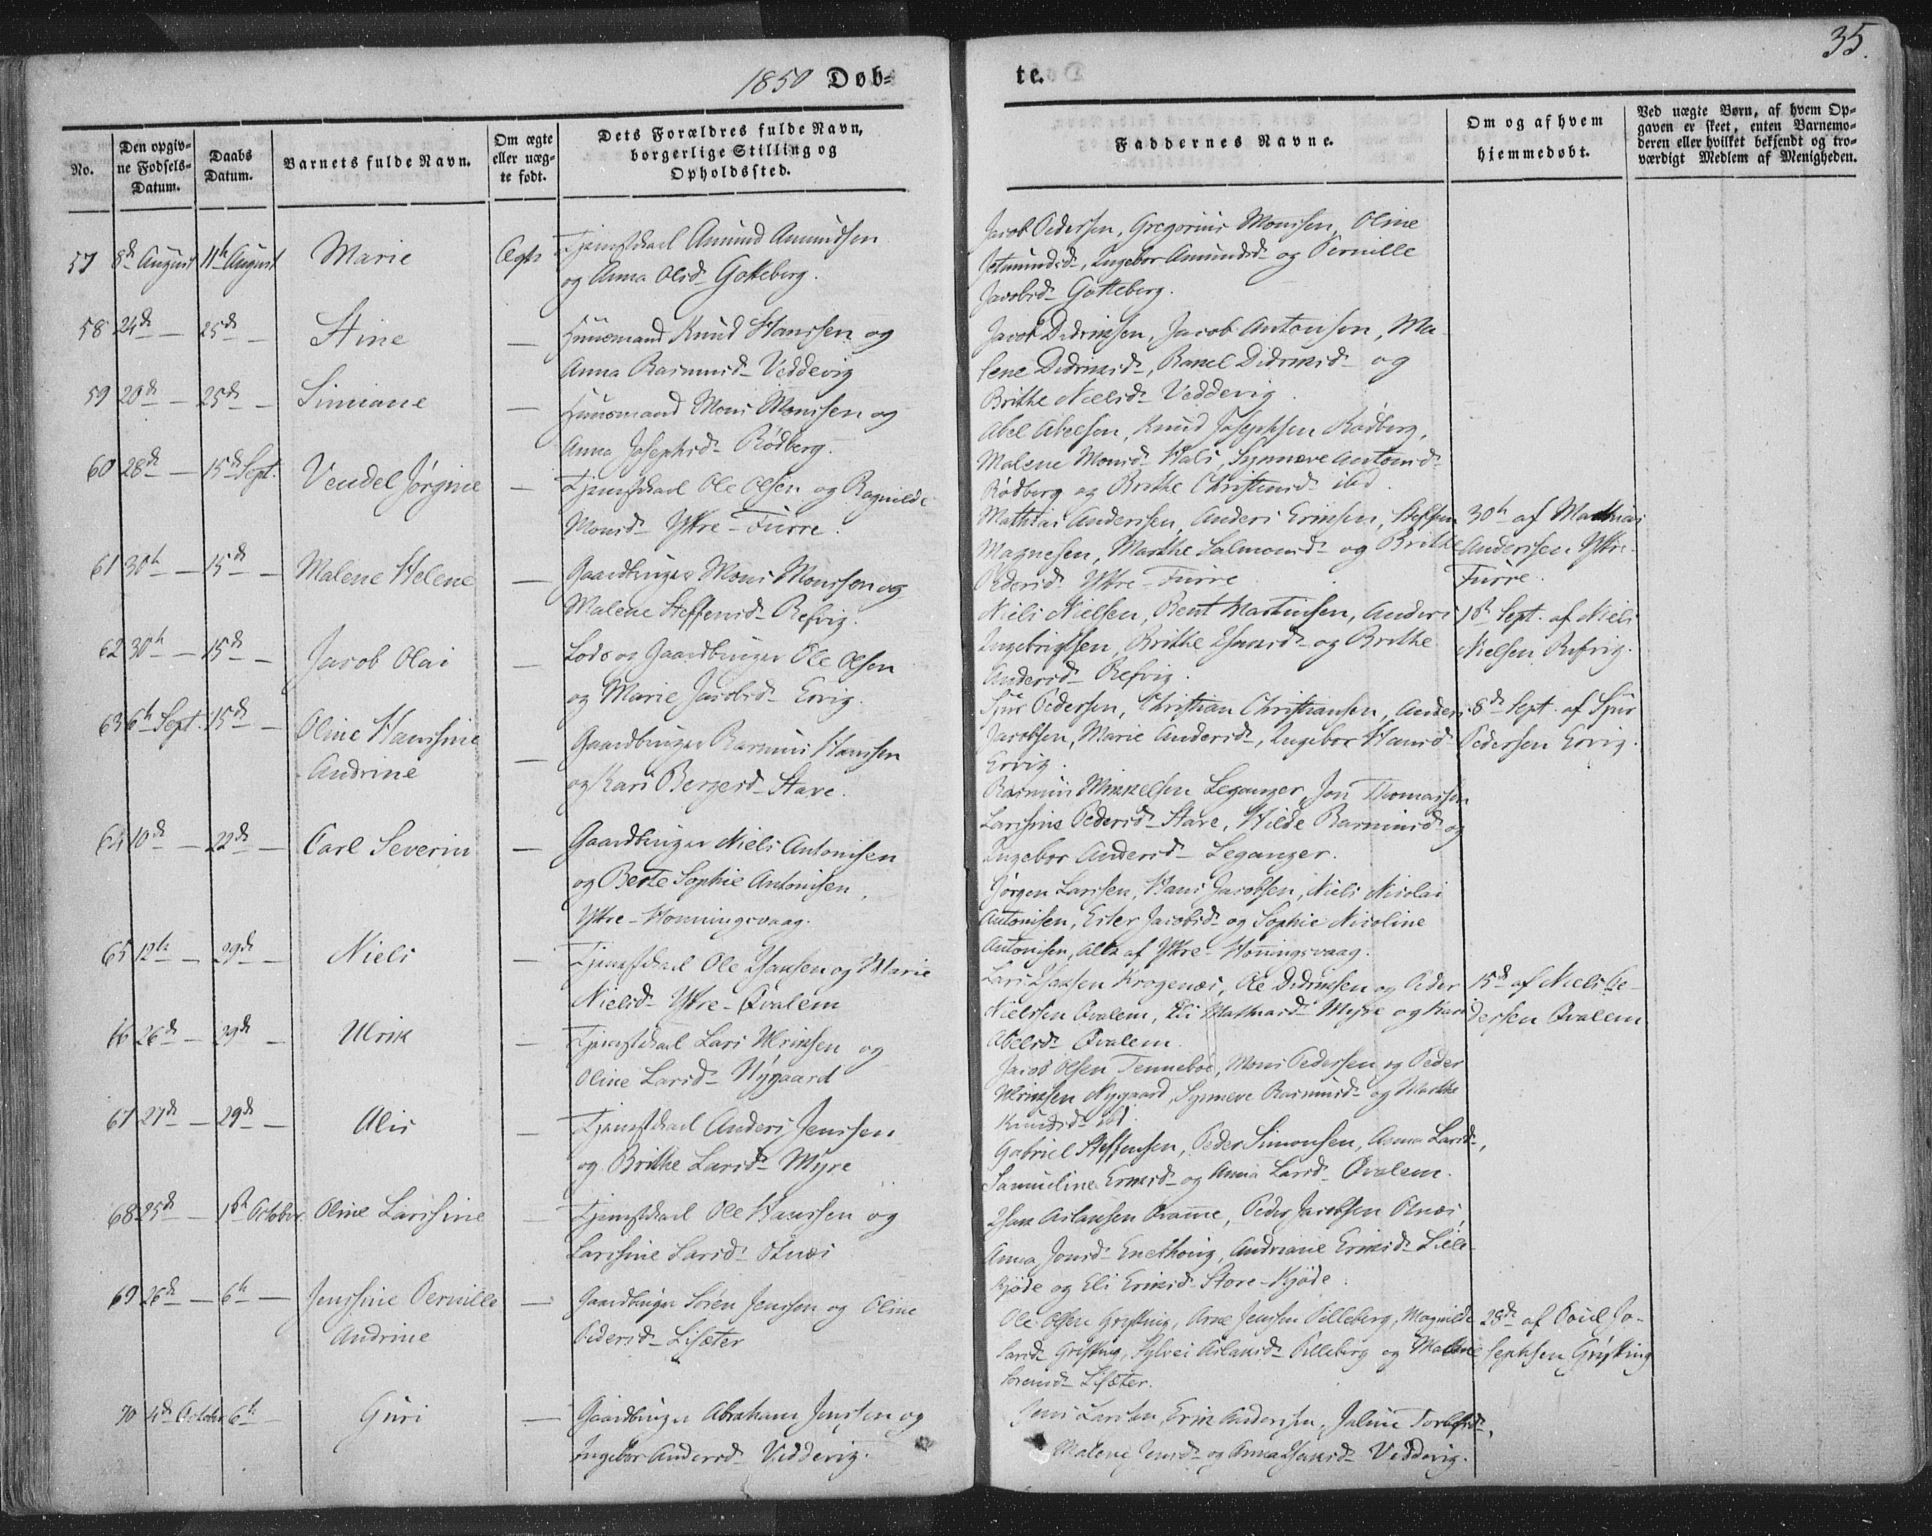 1850 Døb-
No.
Den opgiv-
ne Fødsels-
Datum.
Daabs
Datum.
Barnets fulde Navn.
Om ægte
eller uæg-
te født.
Dets Forældres fulde Navn,
borgerlige Stilling og
Opholdssted.
57 8de August 11te August Marie Ægte Tjenestkarl Amund Amundsen
og Anna Olsd. Gotteberg.
58 24de — 25de — Stine — Huusmand Knud Hanssen og
Anna Rasmusd. Veddevig
59 20de — 25de — Simiane — Huusmand Mons Monssen og
Anna Josephsd. Rødberg.
60 28de — 15de Sept. Vendel Jørgine — Tjenestkarl Ole Olsen og Ragnilde
Monsd. Ytre-Furre.
61 30te — 15de — Malene Helene — Gaardbruger Mons Monssen og
Malene Steffensd. Refvig.
62 30te — 15de — Jacob Olai — Lods og Gaardbruger Ole Olsen
og Marie Jacobsd. Ervig.
63 6te Sept. 15de — Oline Hanssine
Andrine — Gaardbruger Rasmus Hanssen
og Kari Bergersd. Stave.
64 10de — 22de — Carl Severin — Gaardbruger Niels Antonisen
og Berte Sophie Antonisen,
Ytre-Honningsvaag.
65 12te — 29de — Niels — Tjenestkarl Ole Hansen og Marie
Nielsd. Ytre-Qvalem
66 26de — 29de — Ulrik — Tjenestkarl Lars Ulriksen og
Oline Larsd. Nygaard
67 27de — 29de — Alis — Tjenestkarl Anders Jenssen
og Brithe Larsd. Myre
68 25de — 1ste October Oline Larssine — Tjenestkarl Ole Hanssen og
Larssine Larsd. Otnæs
69 26de — 6te — Jenssine Pernille
Andrine — Gaardbruger Søren Jenssen og Oline
Pedersd. Lisæter
70 4de October 6te — Guri — Gaardbruger Abraham Jenssen og
Ingebor Andersd. Veddevig.
te.
35.
Faddernes Navne.
Om og af hvem
hjemmedøbt.
Ved uægte Børn, af hvem Op-
gaven er skeet, enten Barnemo-
deren eller hvilket bekjendt og tro-
værdigt Medlem af Menigheden.
Jacob Pedersen, Gregorius Monssen, Oline
Jetmundsd., Ingebor Amundsd. og Pernille
Jacobsd. Gotteberg.
Jacob Didriksen, Jacob Antonisen, Ma-
lene Didriksd., Ranel Didriksd. og
Brithe Nielsd. Veddevig.
Abel Abelsen, Knud Josephsen Rødberg,
Malene Monsd. Hals, Synneve Antonisd.
Rødberg og Brithe Christensd. ibd.
Mathias Andersen, Anders Eriksen, Steffen
Magnesen, Marthe Salmonsd. og Brithe
Pedersd. Ytre-Furre
30te af Mathias
Andersen Ytre-
Furre.
Niels Nielsen, Bent Martinsen, Anders
Ingebrigtsen, Brithe og Brithe
Andersd. Refvig.
1ste Sept. af Niels
Nielsen Refvig.
Sjur Pedersen, Christian Christiansen, Anders
Jacobsen, Marie Andersd., Ingebor Hansd.
Ervig.
8de Sept. af Sjur
Pedersen Ervig.
Rasmus Mikkelsen Leganger, Jon Thomassen
Larssine Pedersd. Stave, Hilde Rasmusd. og
Ingebor Andersd. Leganger.
Jørgen Larssen, Hans Jacobsen, Niels Nicolai
Antonisen, Ester Jacobsd. og Sophie Nicoline
Antonisen, Alle af Ytre-Honingsvaag.
Lars Hansen Krogenæs, Ole Didriksen og Peder
Nielsen Qvalem, Eli Mathiasd. Myre og Kari
Abelsd. Qvalem.
15de af Niels Pe-
dersen Qvalem
Jacob Olsen Tennebøe, Mons Pedersen og Peder
Ulriksen Nygaard, Synneve Rasmusd. og Marthe
Knudsd. ibd.
Gabriel Steffensen, Peder Simonsen, Anna Larsd.,
Samueline Eriksd. og Anna Larsd. Qvalem.
Aslaksen Qvamme, Peder Jacobsen Otnæs,
Anna Jonsd. Endthoug, Andriane Eriksd. Lille-
Kjøde og Eli Eriksd. Store-Kjøde.
Ole Olsen Grytting, Arne Jenssen Pilleberg, Magnilde
Larsd. Grytting, Sylvei Aslaksd. Pilleberg og Malene
Sørensd. Lisæter.
28de af Poul Jo-
sephsen Grytting
Jens Larssen, Erik Andersen, Jaline,
Malene Jensd. og Anna Hansd. Veddevig.